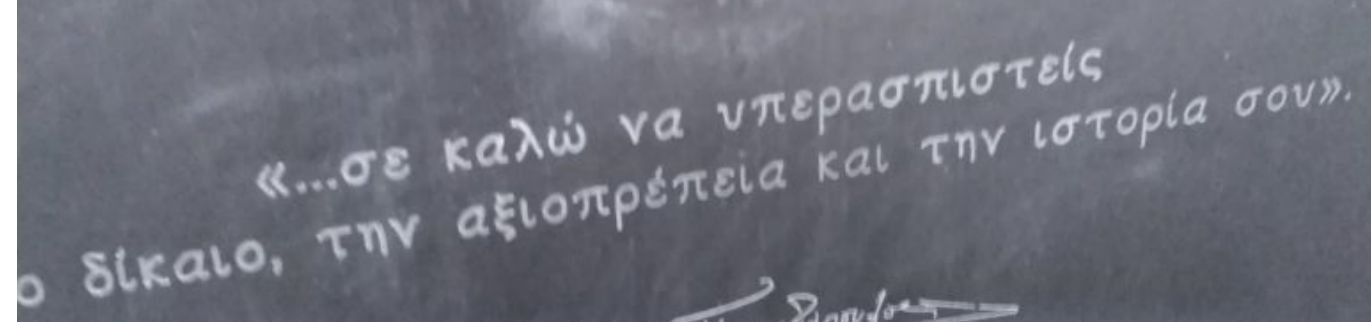 «...σε καλώ να υπερασπιστείς
ο δίκαιο, την αξιοπρέπεια και την ιστορία σου».